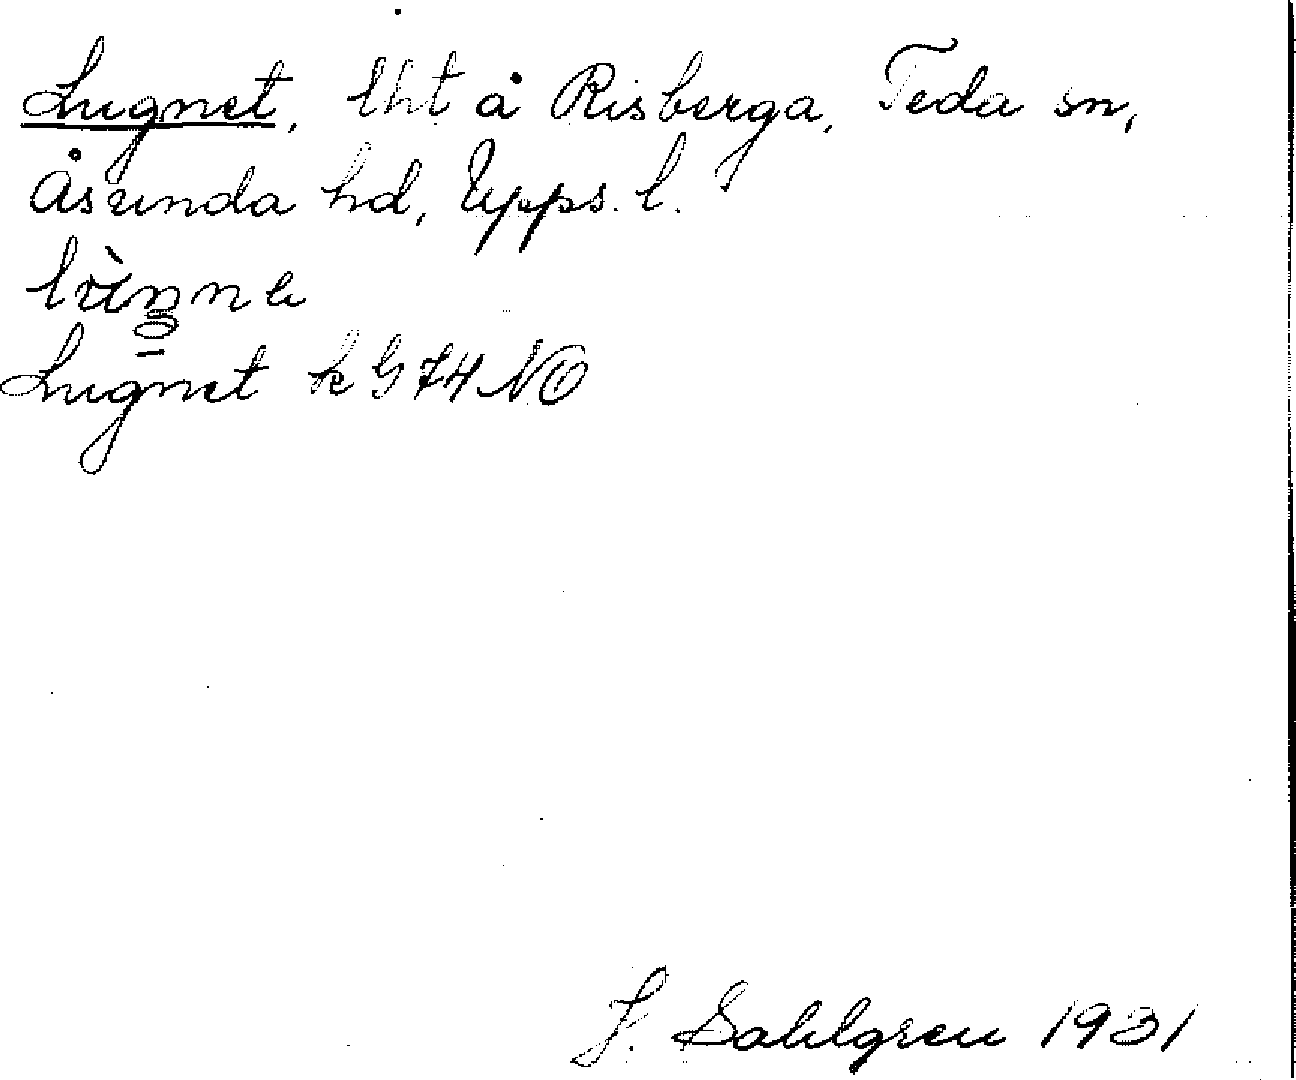 Lugnet, lht å Risberga, Teda sn,
Åsunda hd, Upps. l.
Lugnet k G 74 NO
J. Sahlgren 1931